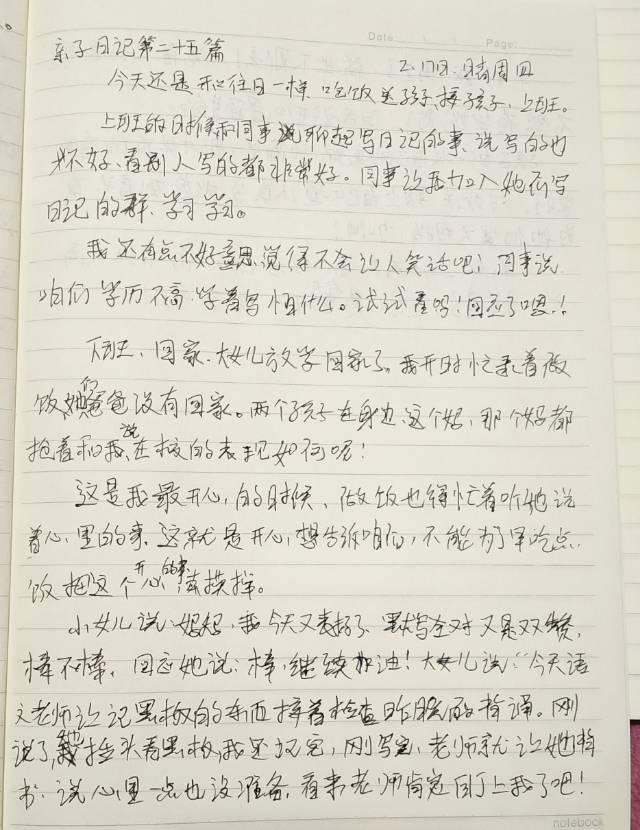 Date
Page:
亲子日记第二十五篇
2.17日.晴周四
今天还是和往日一样 吃饭送孩子,接孩子,上班。
上班的时候和同事说聊起写日记的事,说写的也
不好、看别人写的都非常好。同事让我加入她们写
日记的群、学习学习。
我还有点不好意思,觉得不会让人笑话吧;同事说
咱们学历不高 学着写怕什么。试试看吗!回应了嗯!
下班、回家、大女儿放学回家了。我开时忙柔着做
饭,她们爸爸没有回家。两个孩子在身边 这个妈,那个妈都
抱着和我说在校的表现如何呢!
这是我最开心,的时候、做饭也得忙着听她说
着心里的事.这就是开心,想告诉咱们,不能为了早吃点
饭把这个开心的事 摸掉。
小女儿说:妈妈,我今天又表扬了 默写全对 又是双赞,
棒不棒,回应她说:棒,继续加油!大女儿说:"今天语
文老师让记黑板的东西 接着检查昨晚的背诵。刚
说了,我抬头看黑板,我还没写完,刚写完,老师就让她背
书.说心里一点也没准备,看来老师肯定盯上我了吧!
notebook